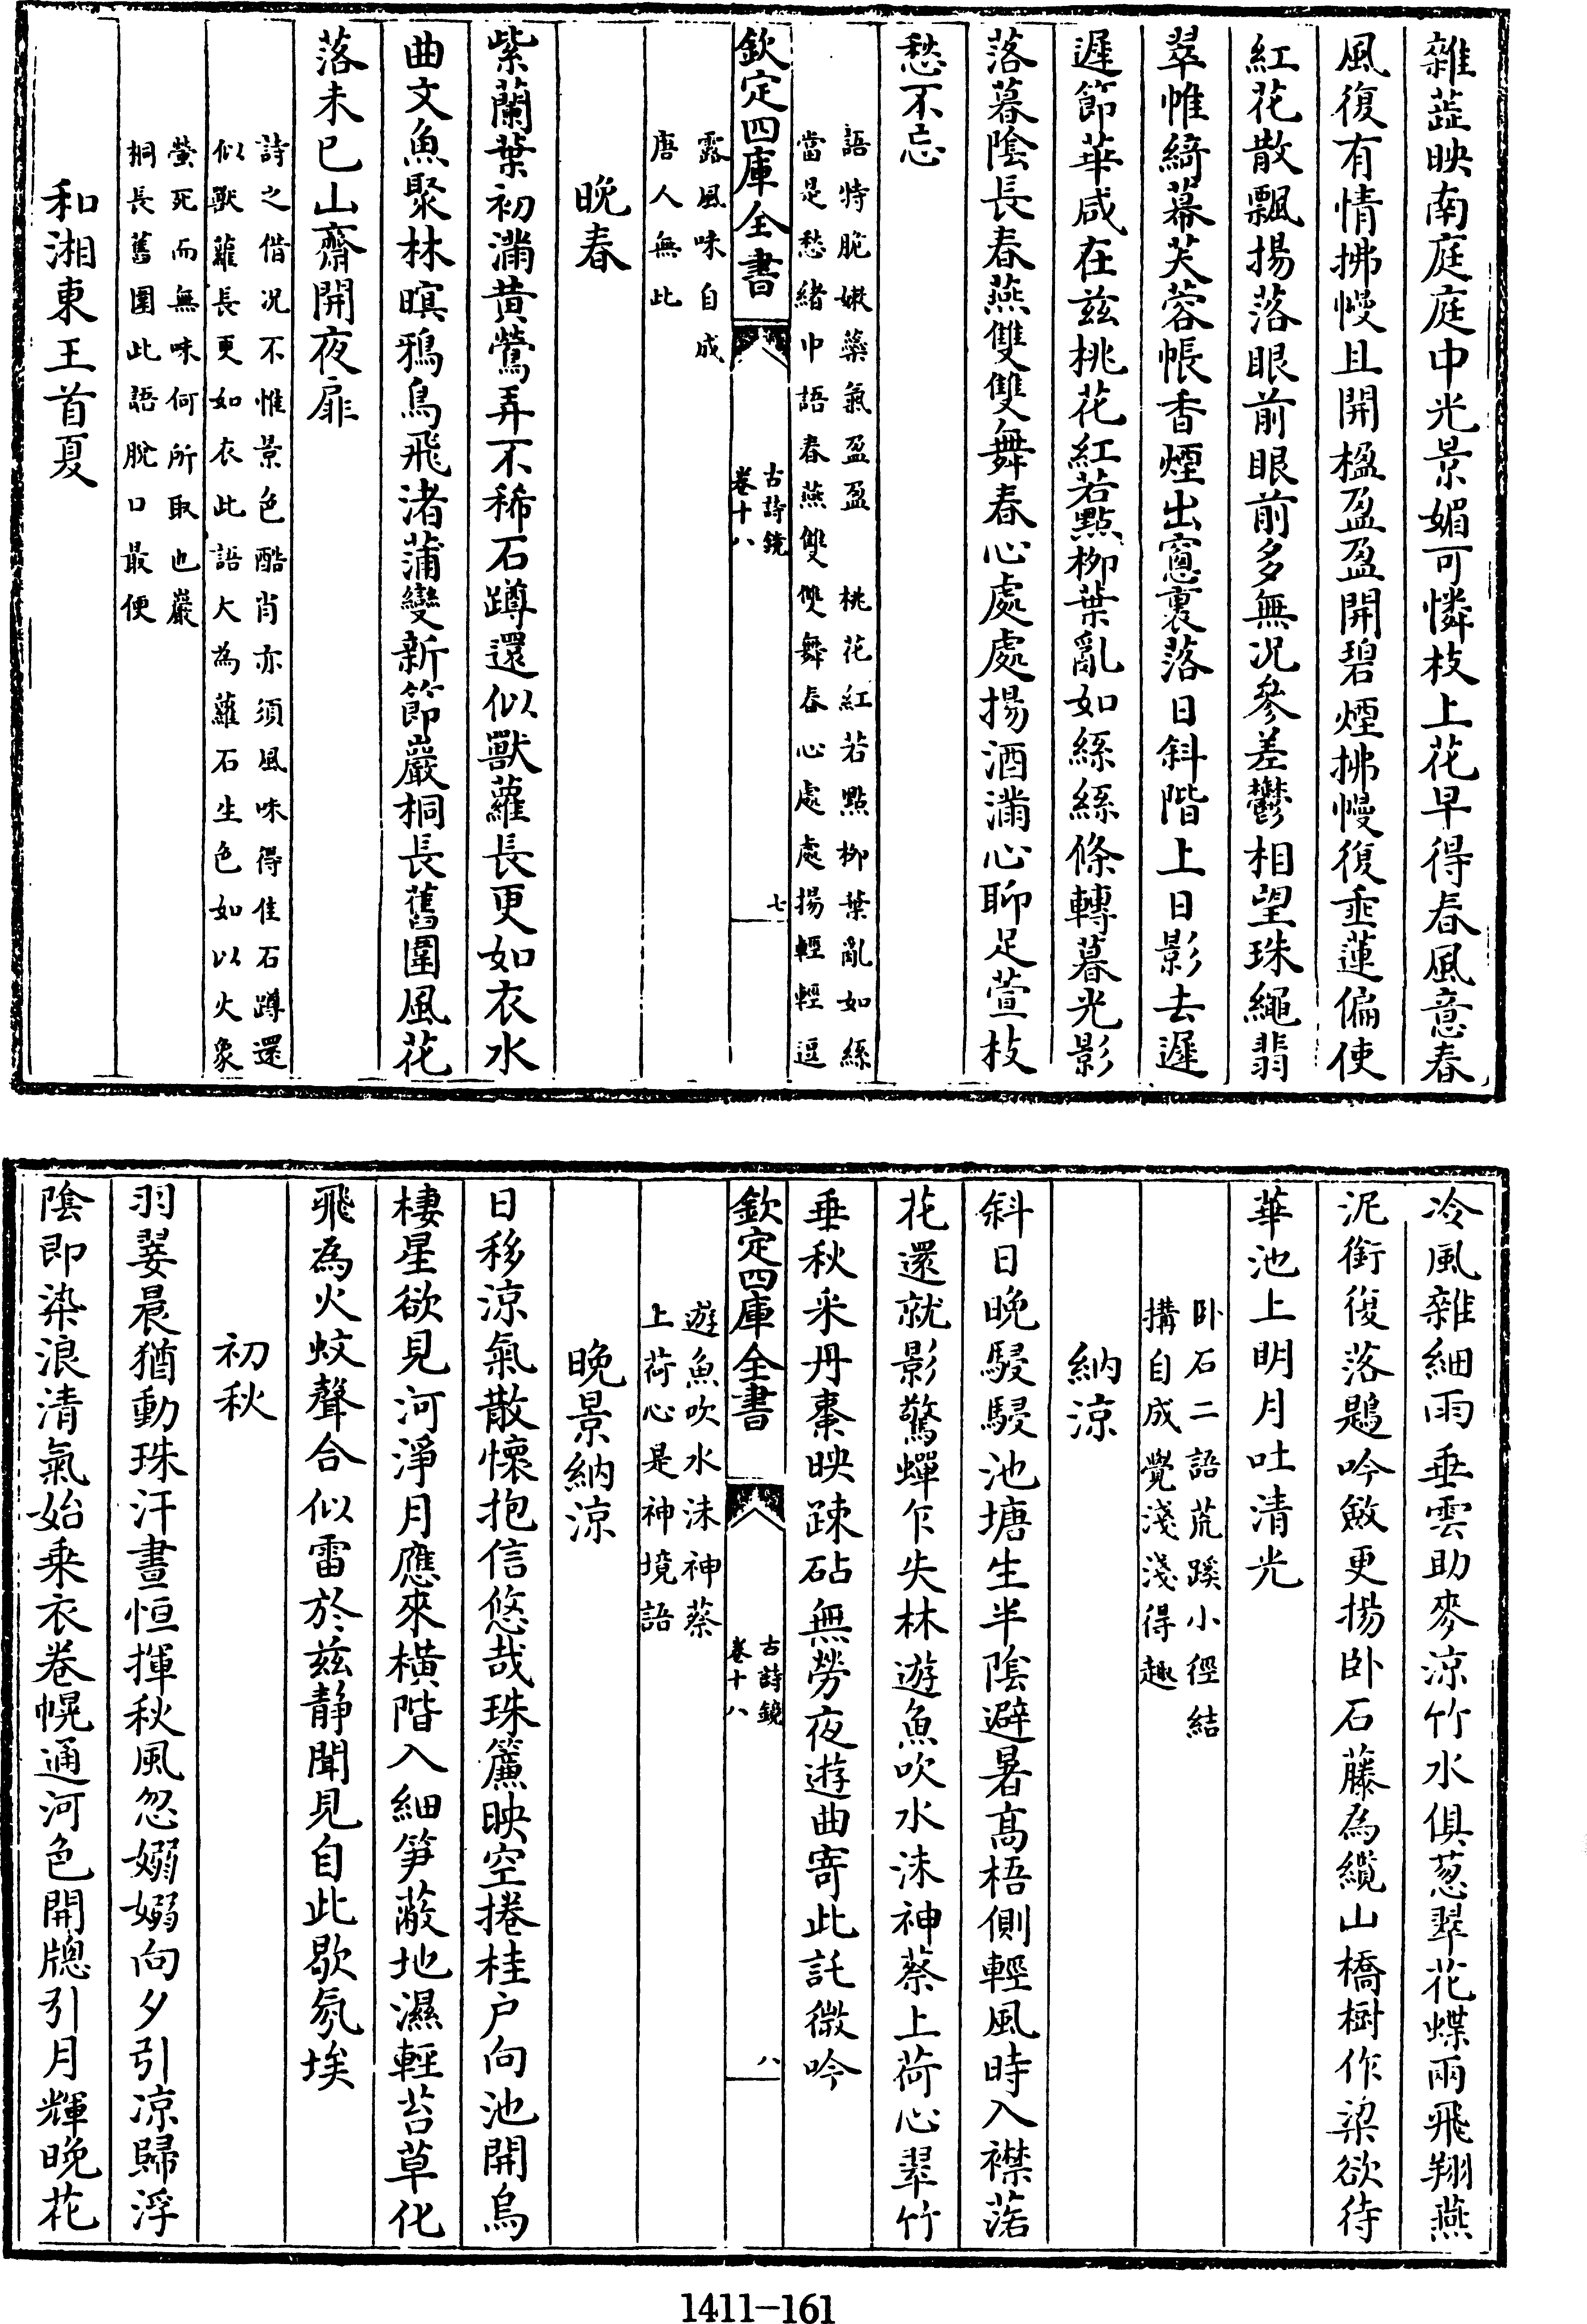 雜蘂映南庭庭中光景媚可憐枝上花早得春風意春
風復有情拂幔且開楹盈盈開碧煙拂幔復垂蓮偏使
紅花散飄揚落眼前眼前多無况參差鬱相望珠繩翡
翠帷綺幕芙蓉帳香煙出窻裏落日斜階上日影去遲
遲節華咸在兹桃花紅若點柳葉亂如絲絲條轉暮光影
落暮陰長春燕雙雙舞春心處處揚酒滿心聊足萱枝
愁不忘
語特脆嫩藥氣盈盈 桃花紅若點柳葉亂如絲
當是愁緒中語春燕雙雙舞春心處處揚輕輕逗
欽定四庫全書
古詩鏡
卷十八
七
露風味自成
唐人無此
晚春
紫蘭葉初滿黄鶯弄不稀石蹲還似獸蘿長更如衣水
曲文魚聚林暝鴉鳥飛渚蒲變新節巖桐長舊圍風花
落未已山齋開夜扉
詩之借况不惟景色酷肖亦須風味得佳石蹲還
似獸蘿長更如衣此語大為蘿石生色如以火象
螢死而無味何所取也巖
桐長舊圍此語脫口最便
和湘東王首夏
冷風雜細雨垂雲助麥涼竹水俱葱翠花蝶兩飛翔燕
泥銜復落鶗吟斂更揚卧石藤為纜山橋樹作梁欲待
華池上明月吐清光
卧石二語荒蹊小徑結
搆自成覺淺淺得趣
納涼
斜日晚駸駸池塘生半陰避暑高梧側輕風時入襟落
花還就影驚蟬乍失林遊魚吹水沫神蔡上荷心翠竹
垂秋采丹棗映疎砧無勞夜遊曲寄此託微吟
欽定四庫全書
古詩鏡
卷十八
八
遊魚吹水沫神蔡
上荷心是神境語
晚景納涼
日移涼氣散懷抱信悠哉珠簾映空捲桂户向池開烏
棲星欲見河淨月應來橫階入細笋蔽地濕輕苔草化
飛為火蚊聲合似雷於兹静聞見自此歇氛埃
初秋
羽翣晨猶動珠汗晝恒揮秋風忽嫋嫋向夕引凉歸浮
陰即染浪清氣始乘衣卷幌通河色開牕引月輝晚花
1411-161